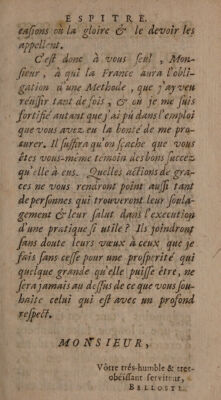 ESPITRE.
casions où la gloire & le devoir les
appellent.
C'est donc à vous seul, Mon-
sieur, à qui la France aura l'obli-
gation d'une Methode, que j'ay veu
réüssir tant de fois, & où je me suis
fortifié autant que j'ai pû dans l'emploi
que vous avez eu la bonté de me pro-
curer. Il suffira qu'on sçache que vous
êtes vous-même témoin des bons succez
qu'elle a eus. Quelles actions de gra-
ces ne vous rendront point aussi tant
de personnes qui trouveront leur soula-
gement & leur salut dans l'execution
d'une pratique si utile? Ils joindront
sans doute leurs vœux à ceux que je
fais sans cesse pour une prosperité qui
quelque grande qu'elle puisse être, ne
sera jamais au dessus de ce que vous sou-
haite celui qui est avec un profond
respect.
MONSIEUR,
Vôtre trés-humble & tres-
obéissant serviteur,
BELLOSTE.